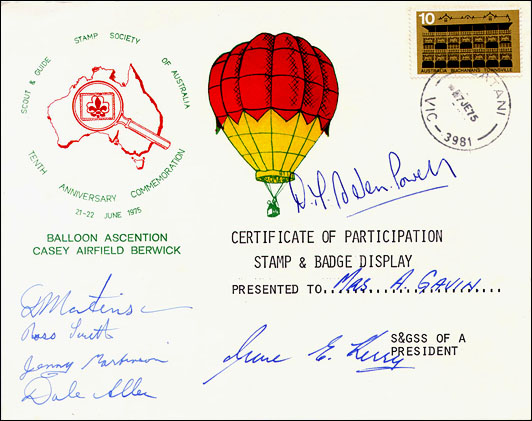 SCOUT & GUIDE STAMP SOCIETY OF AUSTRALIA
TENTH ANNIVERSARY COMMEMORATION
21-22 JUNE 1975
BALLOON ASCENTION
CASEY AIRFIELD BERWICK
10
AUSTRALIA BUCHANAN'S TOWNSVILLE
27JE75
VIC - 3981
CERTIFICATE OF PARTICIPATION
STAMP & BADGE DISPLAY
PRESENTED TO...Mrs A. GAVIN......
S&GSS OF A
PRESIDENT
June E. Kerry
Ross Smith
Jenny
Dale Allen